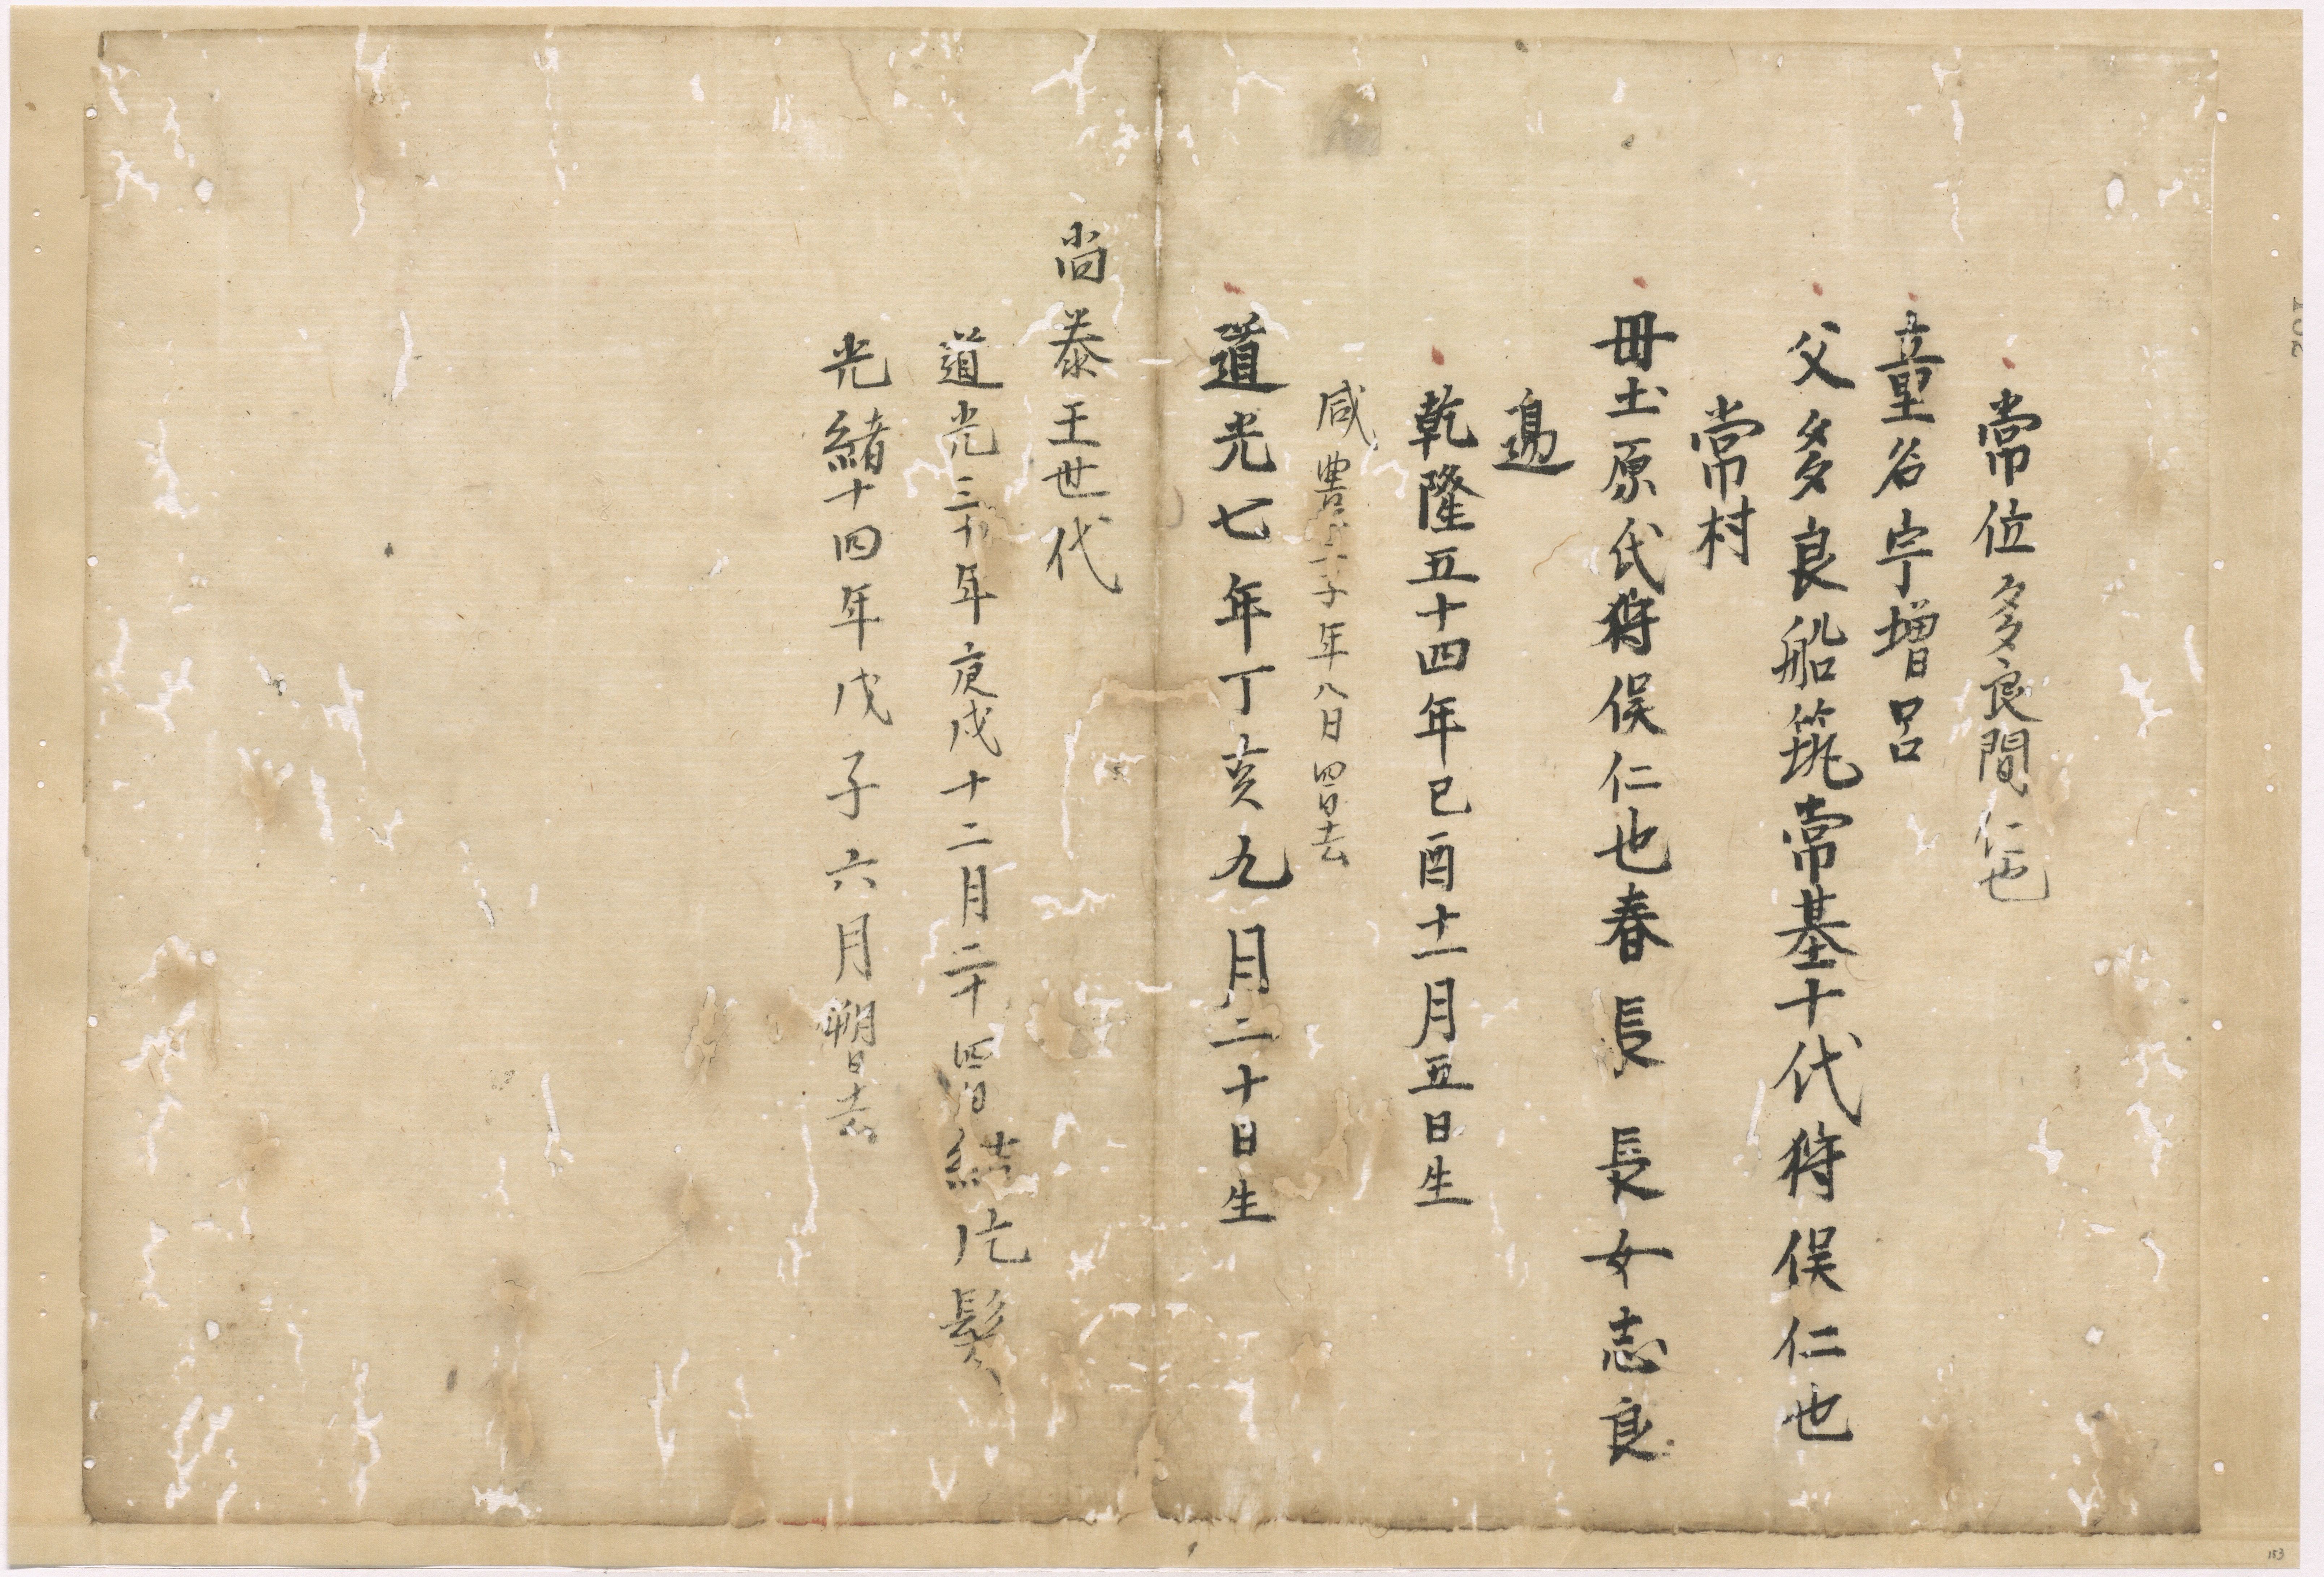 常位多良間仁也
童名宇増呂
父多良船筑常基十代狩俣仁也
常村
毋土原氏狩俣仁也春長長女志良
邉
乾隆五十四年己酉十一月五日生
咸豊子年八日四日去
道光七年丁亥九月二十日生
尚泰王世代
道光三十年庚戌十二月二十四日結片髪
光緒十四年戊子六月朔日去